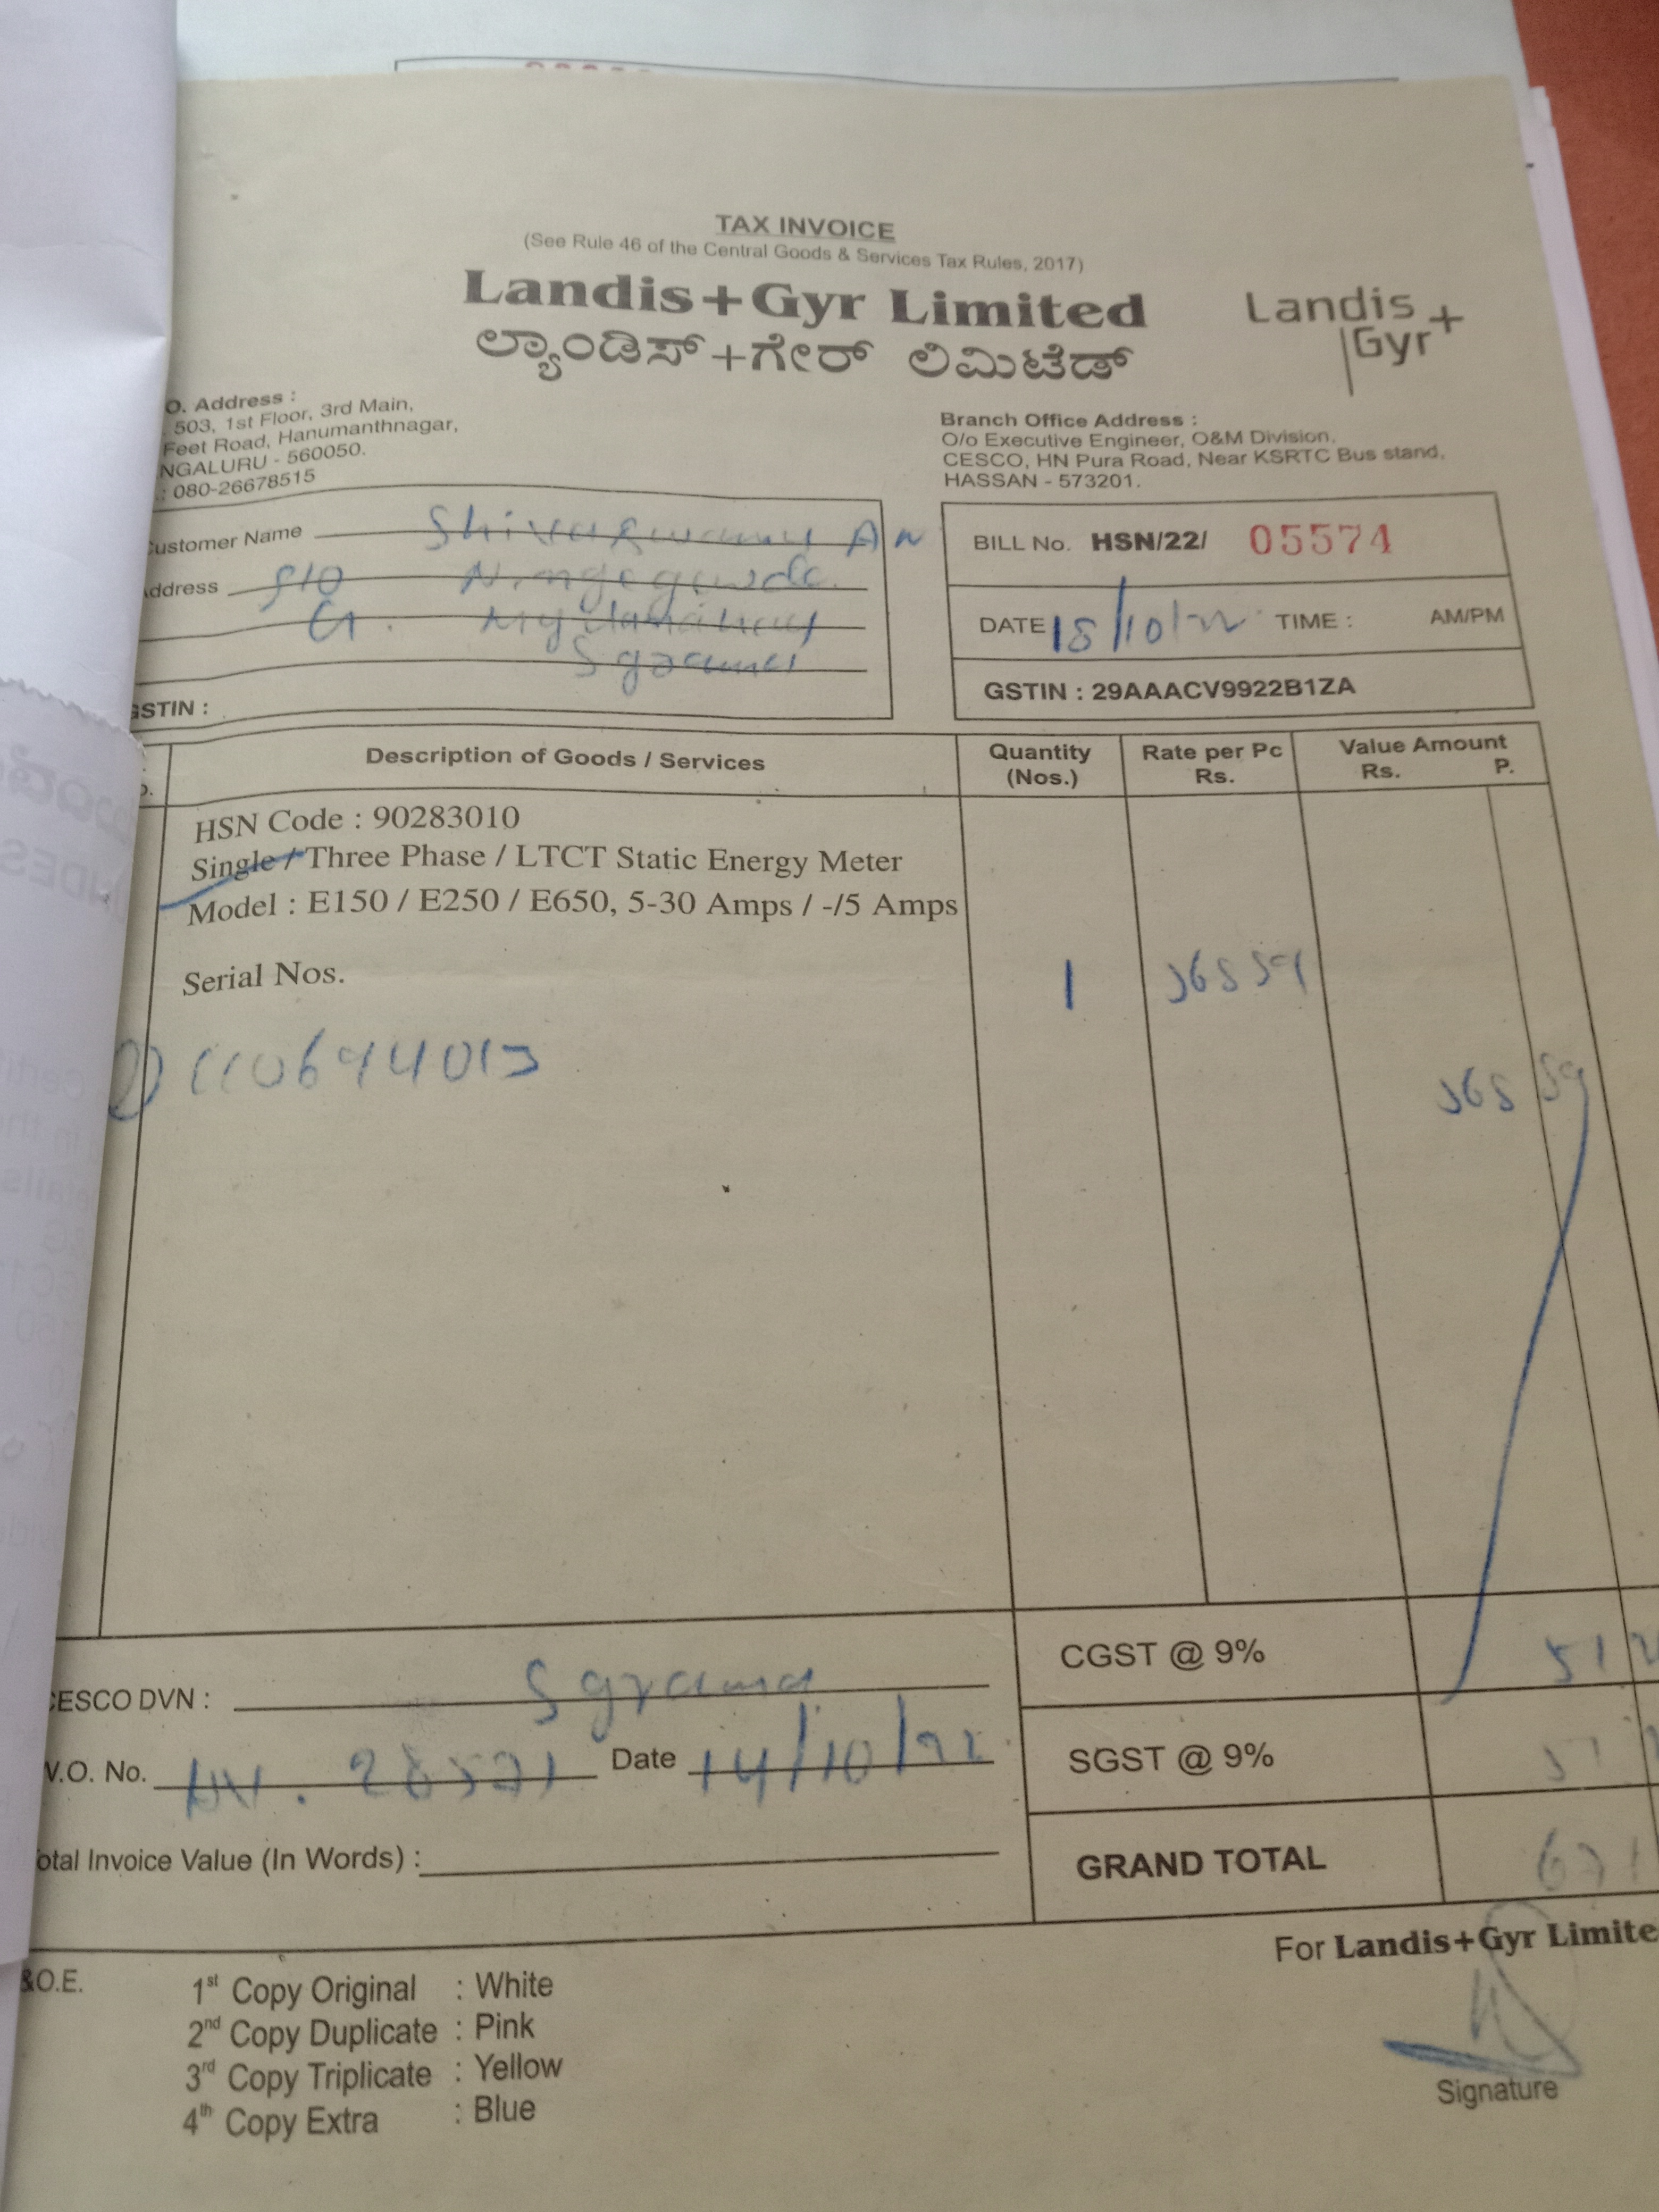 TAX INVOICE
(See Rule 46 of the Central Goods & Services Tax Rules, 2017)
Landis+Gyr Limited
ಲ್ಯಾಂಡಿಸ್+ಗೇರ್ ಲಿಮಿಟೆಡ್
Landis
Gyr+
O. Address :
503, 1st Floor, 3rd Main,
Feet Road, Hanumanthnagar,
NGALURU - 560050.
.: 080-26678515
Branch Office Address :
O/o Executive Engineer, O&M Division,
CESCO, HN Pura Road, Near KSRTC Bus stand,
HASSAN - 573201.
Customer Name Shivaswamy A N
Address S/o
G.
GSTIN :
BILL No. HSN/22/ 05574
DATE 15/10/22 TIME : AM/PM
GSTIN : 29AAACV9922B1ZA
Description of Goods / Services
Quantity
(Nos.)
Rate per Pc
Rs.
Value Amount
Rs. P.
HSN Code : 90283010
Single / Three Phase / LTCT Static Energy Meter
Model : E150 / E250 / E650, 5-30 Amps / -/5 Amps
Serial Nos.
1
CGST @ 9% 51
SGST @ 9% 51
GRAND TOTAL
CESCO DVN :
W.O. No. Date 14/10/22
otal Invoice Value (In Words) :
For Landis+Gyr Limite
Signature
&O.E.
1st Copy Original : White
2nd Copy Duplicate : Pink
3rd Copy Triplicate : Yellow
4th Copy Extra : Blue